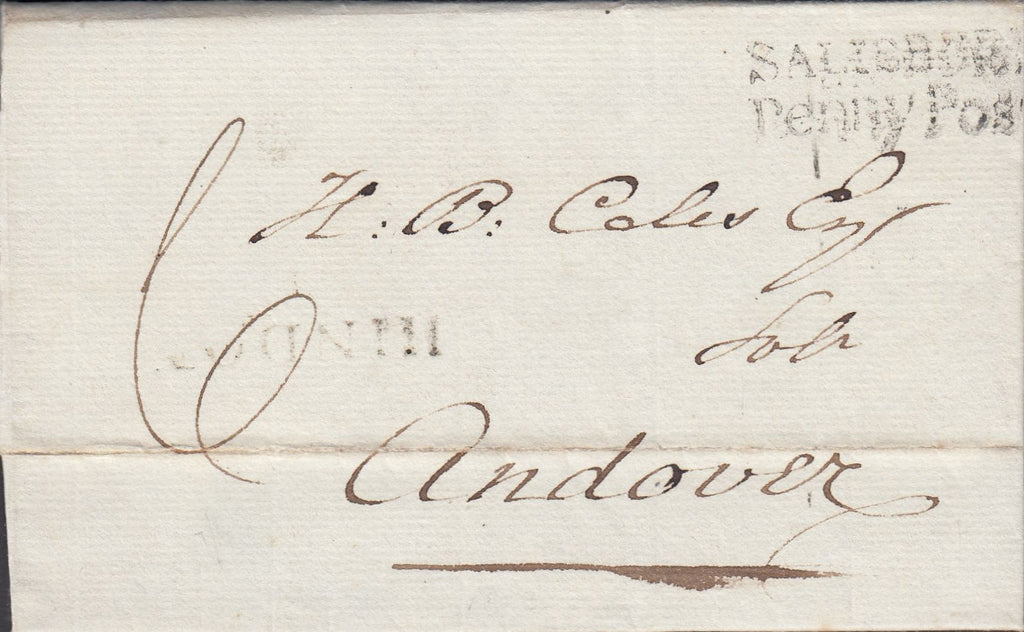 SALISBURY
Penny Post
6
H. B. Coles Esq
Solr
Andover